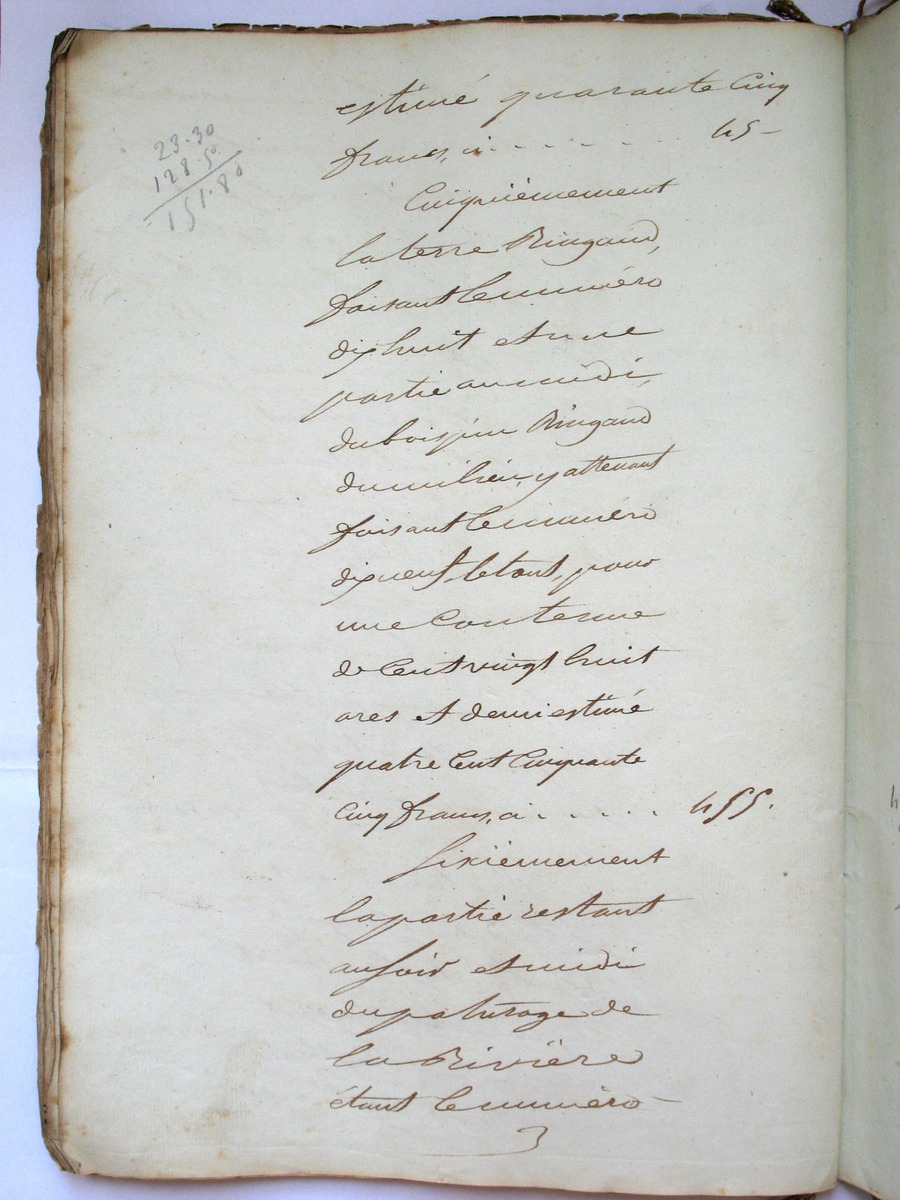 23.30
128.50
151.80
estimé quarante Cinq
francs, ci . . . . . . . . 45 -
Cinquièmement
la terre Ringaud,
faisant le numéro
dix huit et une
partie au midi,
du bois pin Ringaud
du milieu, y attenant
faisant le numéro
dix neuf, le tout, pour
une Contenue
de Cent vingt huit
ares et demi estimé
quatre Cent Cinquante
Cinq francs, ci . . . . . 455.
Sixièmement
la partie restant
au soir et midi
du paturage de
la Rivière
étant le numéro -